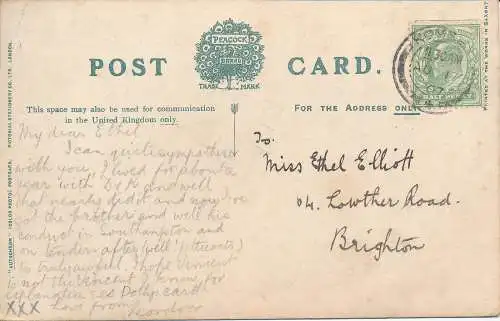 PEACOCK
BRAND
TRADE MARK
POST CARD.
This space may also be used for communication
in the United Kingdom only.
FOR THE ADDRESS ONLY
My dear Ethel
I can quite sympathise
with you, I lived for about a
year with Dr & and well
that nearly did it and now I've
got the brother and well his
conduct in Southampton and
on London after (well! streets)
is truly awful. I hope Vincent
is not the Vincent I know, for
explanation see Dolly's card
XXX Love from
To.
Miss Ethel Elliott
04. Lowther Road.
Brighton
PICTORIAL STATIONERY CO., LTD., LONDON.
"AUTOCHROM" (COLOUR PHOTO) POSTCARD.
PRINTED AT THE WORKS IN SAXONY